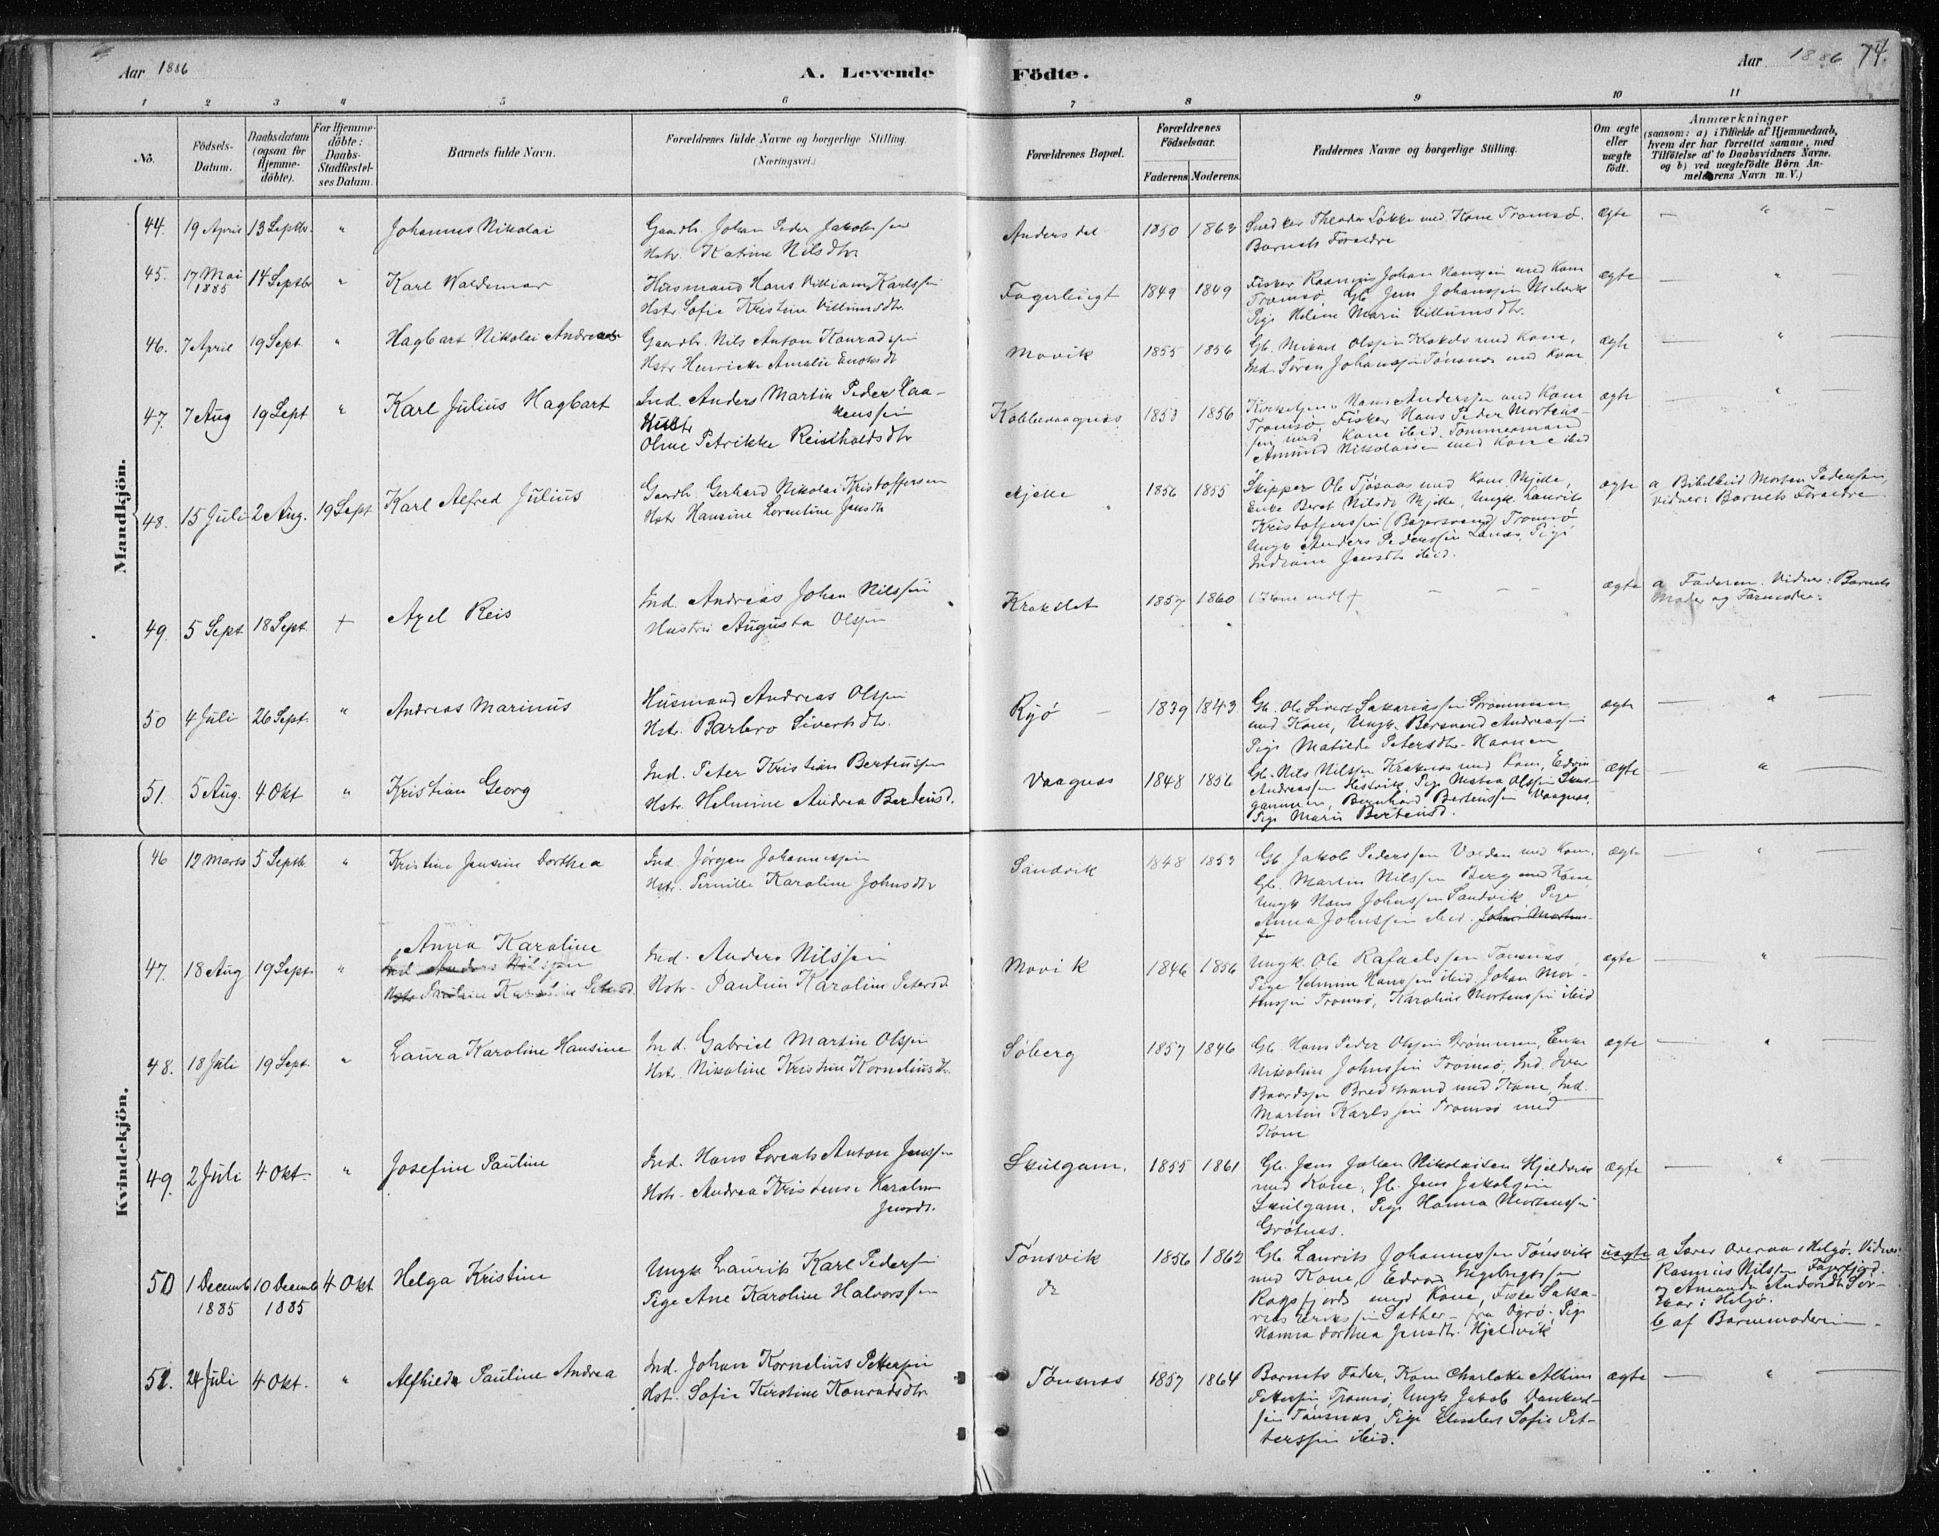 Aar 1886
A. Levende Födte.
Aar 1886 74.
1 2 3 4 5 6 7 8 9 10 11
No.
Födsels-Datum.
Daabsdatum (ogsaa for Hjemme-döbte).
For Hjemme-döbte: Daabs-Stadfæstel-ses Datum.
Barnets fulde Navn.
Forældrenes fulde Navne og borgerlige Stilling.
(Næringsvei.)
Forældrenes Bopæl.
Forældrenes Födselsaar.
Faderens. Moderens.
Faddernes Navne og borgerlige Stilling.
Om ægte eller uægte födt.
Anmærkninger
(saasom: a) i Tilfælde af Hjemmedaab,
hvem der har forrettet samme, med
Tilföielse af to Daabsvidners Navne.
og b) ved uægtefödte Börn An-
melderens Navn m. V.)
Mandkjön.
44. 19 April 13 Septbr. " Johannes Nikolai
Gaardbr. Johan Peder Jakobssen
Hstr. Katrine Nilsdtr
Andersdal 1850 1863
Snedker Theodor Løkke med Kone Tromsø.
Barnets Forældre
ægte — " —
45. 17 Mai 1885 14 Septbr " Karl Waldemar
Husmand Hans Villiam Karlssen
Hstr Sofie Kristine Villumsdtr.
Fagerlingt 1849 1849
Fisker Rasmus Johan Hanssen med Kone
Tromsø, Gb. Jens Johanssen
Pige Helene Marie Villumsdtr.
ægte — "
46. 7 April 19 Sept " Hagbart Nikolai Andreas
Gaardbr. Nils Anton Konradssen
Hstr Henrikke Amalie Enoksdt
Movik 1855 1856
Gb. Mikael Olssen med Kone,
Ind. Søren Johanssen Tønsnæs med Kone
ægte — " —
47. 7 Aug 19 Sept " Karl Julius Hagbart
Ind. Anders Martin Peder Haa-
kenssen
Hustr
Oline Petrikke Reinholdsdtr
Kobbevaagnæs 1853 1856
Hans Anderssen med Kone
Tromsø, Fisker Hans Peder Mortens-
sen med Kone ibid. Tømmermand
Amund Nikolaisen med Kone ibid
ægte — " —
48. 15 Juli 2 Aug. 19 Sept Karl Alfred Julius
Gaardb. Gerhard Nikolai Kristoffersen
Hstr Hansine Lorentine Jensdt
Mjelle 1856 1855
Skipper Ole Tønsnæs med Kone Mjelle,
Enke Beret Nilsdt Mjelle, Ungk. Laurits
Kristofferssen Tromsø
Ungk Anders Pederssen Lanæs, Pige
Indiane Jensdtr ibid.
ægte a. Morten Pedersen,
vidner: Barnets Forældre
49. 5 Sept 18 Sept + Axel Reis
Ind. Andreas Johan Nilssen
Hustru Augusta Olssen
Krokslet 1857 1860
— — —
ægte a Faderen. Vidner: Barnets
Moder og Farmoder.
50 4 Juli 26 Sept. " Andreas Marinus
Husmand Andreas Olssen
Hstr. Barbro Sivertsdtr.
Ryø — 1839 1843
Gb. Ole Sivert Sakariassen Strømmen
med Kone, Ungk. Andreassen
Pige Matilde Petersdtr. Havnen
ægte — " —
51. 5 Aug. 4 Okt " Kristian Georg
Ind. Peter Kristian Bertenssen
Hstr. Helmine Andrea Bertensd.
Vaagnæs 1848 1856
Gb. Nils Nilssen Kraknæs med Kone, Edvin
Andreassen, Pige Olssen Skul-
gammen, Bernhard Bertenssen Vaagnæs,
Pige Marie Bertensd.
ægte — " —
Kvindekjön.
46 12 Marts 5 Septb " Kristine Jensine Dorthea
Ind. Jørgen Johannessen
Hstr. Pernille Karoline Johnsdtr
Sandvik 1848 1853
Gb Jakob Pederssen Volden med Kone.
Gb. Martin Nilssen Berg med Kone
Ungk Hans Johnssen Sandvik Pige
Anna Johnssen ibid. Johan Morten-
ægte — " —
47. 18 Aug 19 Sept. " Anna Karoline
Ind. Anders Nilssen
Hstr Pauline Karoline Petersd.
Ind. Anders Nilssen
Hstr. Pauline Karoline Petersd
Movik 1846 1856
Ungk. Ole Rafaelssen Tønsnæs,
Pige Helmine Hanssen ibid. Johan Mor-
tenssen Tromsø, Karoline Mortenssen ibid
ægte — "
48. 18 Juli 19 Sept. " Laura Karoline Hansine
Ind. Gabriel Martin Olssen
Hstr. Nikoline Kristine Korneliusdtr.
Søberg 1857 1846
Gb. Hans Peder Olssen Strømmen, Enke
Nikoline Johnssen Tromsø, Ind. Iver
Baardssen Bredstrand med Kone, Ind.
Martin Karlssen Tromsø med
Kone
ægte — "
49. 2 Juli 4 Okt. " Josefine Pauline
Ind. Hans Lorents Anton Jenssen
Hstr. Andrea Kristense Karoline
Jensdt.
Skulgam. 1855 1861
Gb. Jens Johan Nikolaisen Hjeldvik
med Kone, Gb. Jens Jakobssen
Skulgam. Pige Hanna Mortenssen
Grøtnæs.
ægte — "
50 1 Decemb 1885 10 Decemb 1885 4 Okt Helga Kristine
Ungk Laurits Karl Pederssen
Pige Ane Karoline Halvorssen
Tønsvik 1856 1862
Gb. Laurits Johannessen Tønsvik
med Kone, Edvard Ingebrigtssen
Ragsfjord med Kone, Saka-
rias Erikssen Sæther — fra Ryø. Pige
Hanna Dorthea Jensdtr. Hjeldvik
uægte a i Helgø. Vidner:
Rasmus Nilssen
og Amanda
i Helgø.
b af Barnemoderen —
51. 24 Juli 4 Okt. " Alfhilda Pauline Andrea
Ind. Johan Kornelius Petterssen
Hst. Sofie Kirstine Konradsdtr
Tønsnæs 1857 1864
Barnets Fader, Kone Charlotte Albine
Petterssen Tromsø, Ungk Jakob Dankert-
ssen Tønsnæs, Pige Elisabet Sofie Pet-
terssen ibid.
ægte — " —